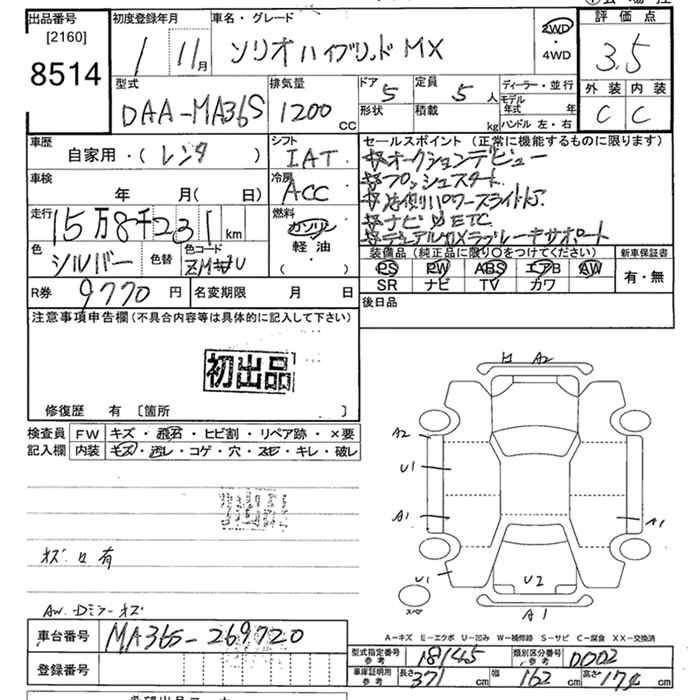 出品番号
[2160]
8514
初度登録年月
1 11月
車名・グレード
ソリオハイブリッド MX
2WD
・
4WD
評価点
3.5
外装 内装
C C
型式
DAA-MA36S
排気量
1200 cc
ドア 5
形状
定員 5 人
積載 kg
ディーラー・並行
モデル年式 年
ハンドル 左・右
車歴
自家用・( レンタ )
シフト
IAT
セールスポイント (正常に機能するものに限ります)
オークションデビュー
プッシュスタート
パワースライドドア
ナビ ETC
デュアルカメラブレーキサポート
車検
年 月( 日)
冷房
ACC
走行
15万8千231 km
燃料
ガソリン
軽油
( )
色
シルバー
色替
色コード
装備品 (純正品に限り〇をつけてください)
新車保証書
PS PW ABS エアB AW
SR ナビ TV カワ
有・無
R券 9770 円
名変期限 月 日
後日品
注意事項申告欄 (不具合内容等は具体的に記入して下さい)
初出品
修復歴 有 [箇所 ]
検査員
記入欄
FW キズ・飛石・ヒビ割・リペア跡・×要
内装 キズ・汚レ・コゲ・穴・スレ・キレ・破レ
A2
A2
U1
A1
A1
U1
U2
A1
スペア
有
AW.Dミラーキズ
A-キズ E-エクボ U-凹み W-補修跡 S-サビ C-腐食 XX-交換済
車台番号 MA36S-269720
登録番号
型式指定番号 参考 18145
類別区分番号 参考 0002
車庫証明用 参考 長さ 371 cm 幅 162 cm 高さ 174 cm